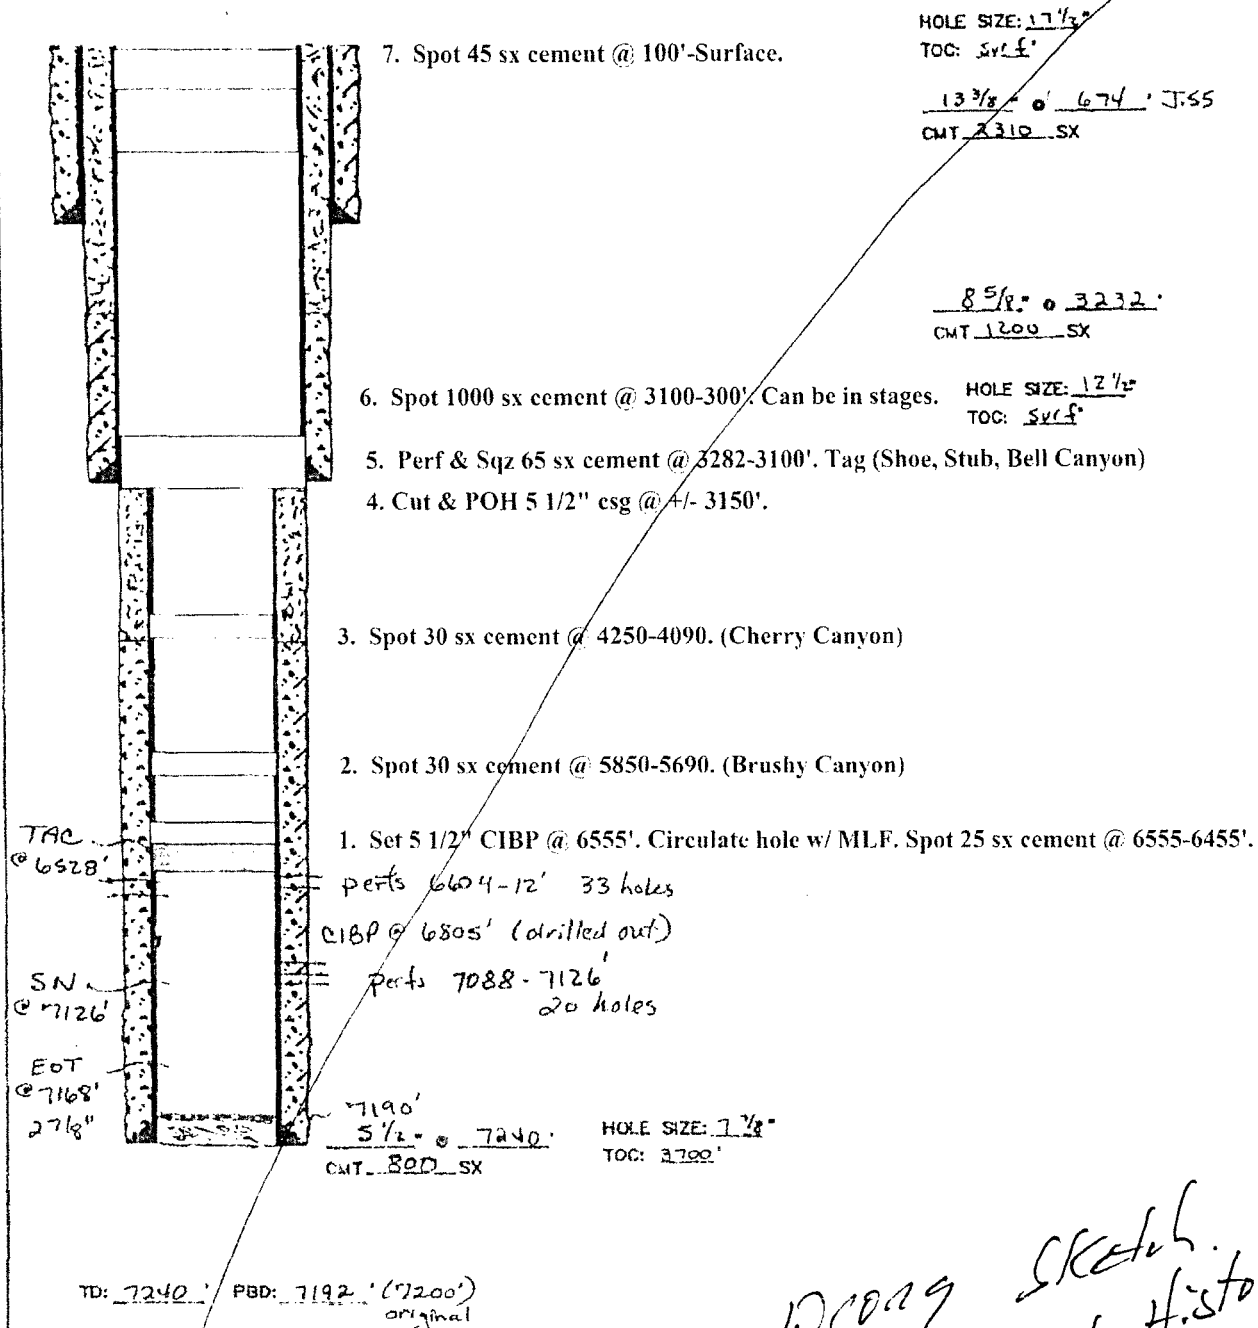 HOLE SIZE: 17 1/2"
TOC: surf'
7. Spot 45 sx cement @ 100'-Surface.
13 3/8" @ 674' J-55
CMT 2310 SX
8 5/8" @ 3232'
CMT 1200 SX
6. Spot 1000 sx cement @ 3100-300'. Can be in stages.
HOLE SIZE: 12 1/2"
TOC: surf'
5. Perf & Sqz 65 sx cement @ 3282-3100'. Tag (Shoe, Stub, Bell Canyon)
4. Cut & POH 5 1/2" csg @ +/- 3150'.
3. Spot 30 sx cement @ 4250-4090. (Cherry Canyon)
2. Spot 30 sx cement @ 5850-5690. (Brushy Canyon)
TAC
@ 6528'
1. Set 5 1/2" CIBP @ 6555'. Circulate hole w/ MLF. Spot 25 sx cement @ 6555-6455'.
perfs 6604-12' 33 holes
CIBP @ 6805' (drilled out)
SN
@ 7126'
perfs 7088-7126'
20 holes
EOT
@ 7168'
2 7/8"
7190'
5 1/2" @ 7240'
CMT 800 SX
HOLE SIZE: 7 7/8"
TOC: 3700'
TD: 7240' PBD: 7192' (7200')
original
Sketch.